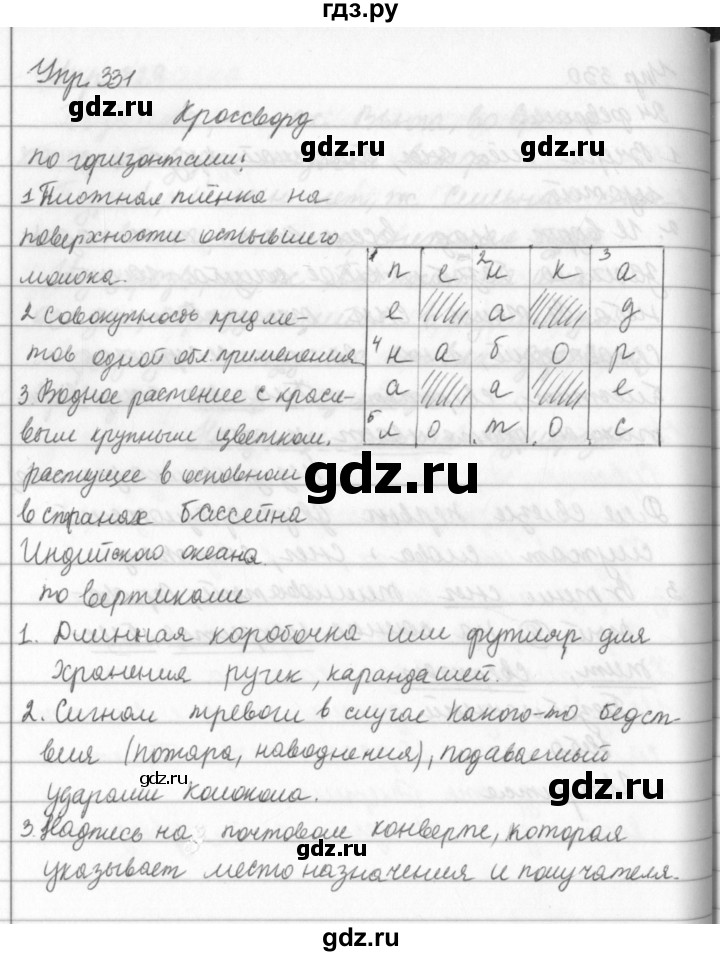 гдз.ру
Упр 331
gdz.ru gdz.ru
Кроссворд
по горизонтами:
gdz.ru gdz.ru
1 Плотная плёнка на
поверхности остывшего
молока.
2 Совокупность предме-
тов одной обл применения
3. Водное растение с краси-
вым крупным цветком,
растущее в основном
в странах бассейна
Индийского океана.
1 п е 2 н к 3 а
е а д
4 н а б о р
а а е
5 л о т о с
gdz.ru
по вертиками
1. Длинная коробочка или футляр для
хранения ручек, карандашей.
2. Сигнал тревоги в случае какого-то бедст-
вия (пожара, наводнения), подаваемый
gdz.ru gdz.ru
ударами колокола.
3. Надпись на почтовом конверте, которая
gdz.ru gdz.ru
указывает место назначения и получателя.
gdz.ru